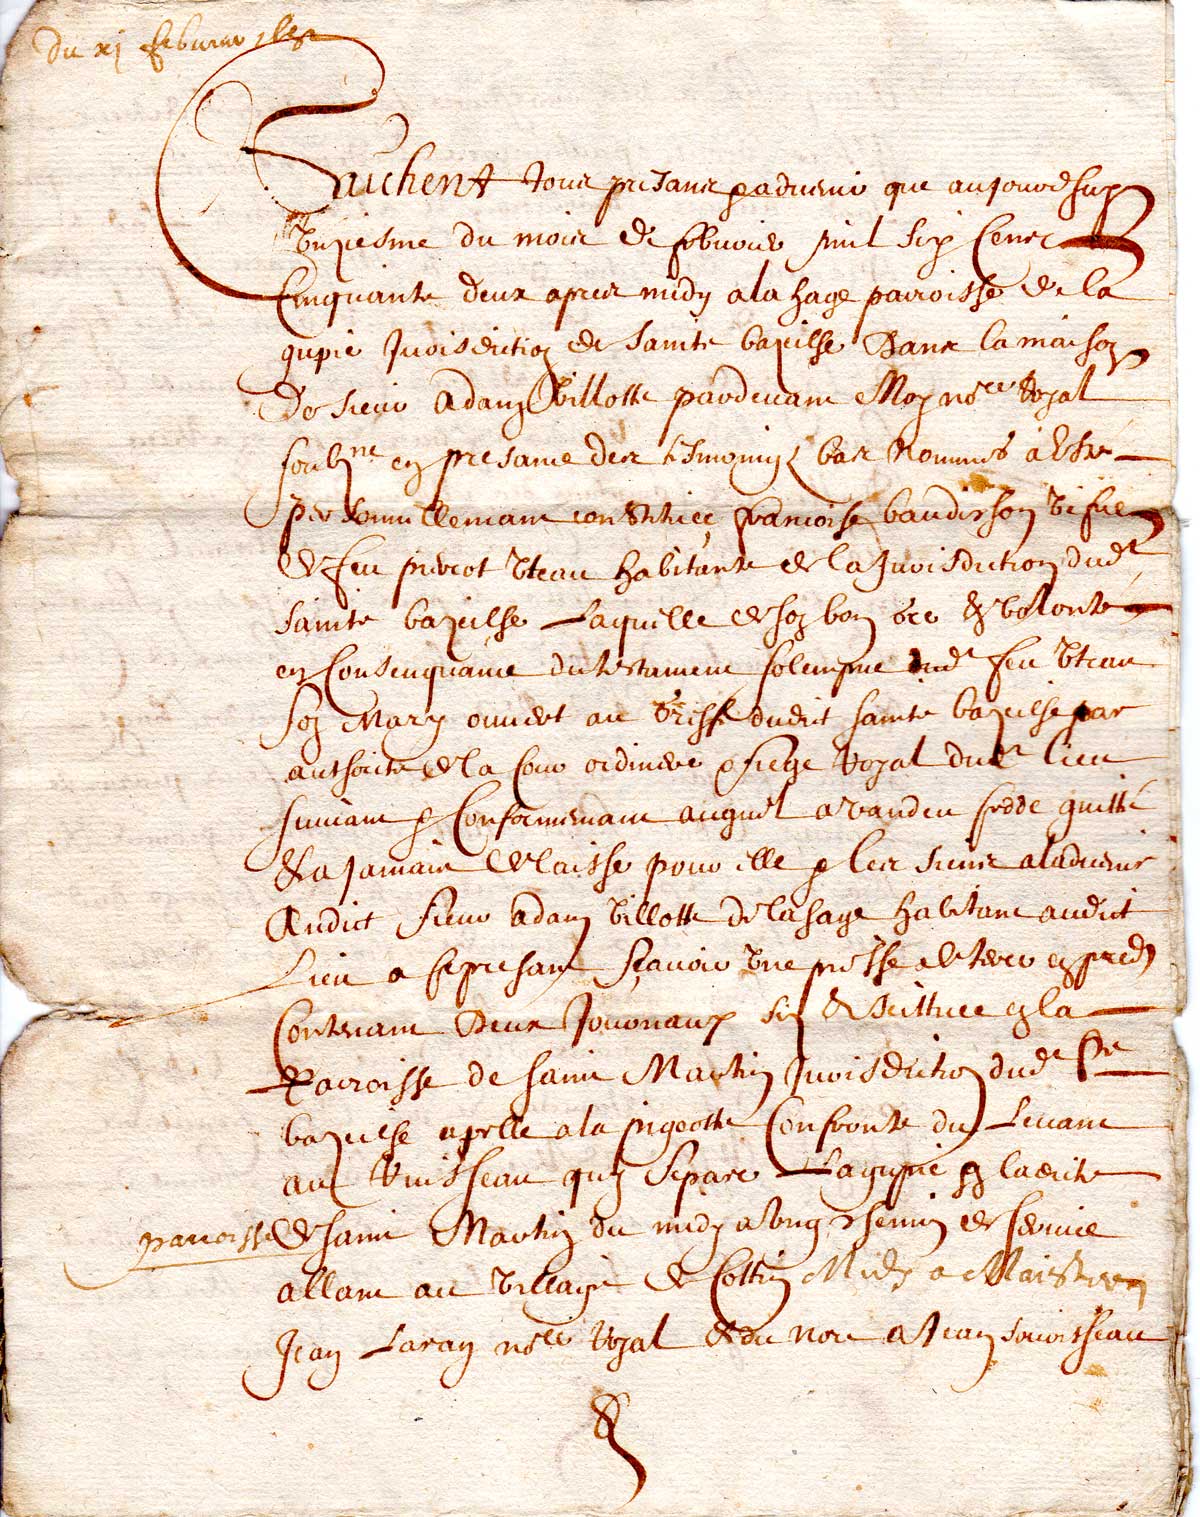 du xj febvrier 1652
Saichent tous presans & advenir que aujourdhuy
unziesme du mois de febvrier mil six cens
Cinquante deux apres midy a la hage parroisse de la
gupie Jurisdiction de sainte bazeilhe dans la maison
de sieur adam Villotte pardevant Moy no.re Royal
soub.ne en presance des tesmoings bas nommes a esté
personnellemant constituee francoise
de feu pierrot Uteau habitante de la Jurisdiction dud.t
sainte bazeilhe Laquelle de son bon gre & volonte
en Consequance du testamant solempne dud.t feu Uteau
son Mary ouvert au greffe dudict sainte bazeilhe par
authorite de la Cour ordinere & siege Royal dud.t lieu
suivant & Conformemant auquel a vandeu cedde quitté
& a Jamais delaisse pour elle & les siens a ladvenir
Audict sieur adam Villotte de la hage habitant audict
Lieu a se presant sçavoir une piesse de terre en pred
Contenant Deux Journaux sis & scittuee en la
Parroisse de saint Martin Jurisdiction dud.t S.te
bazeilhe apelle a la pigeotte Confronte du Levant
au Ruisseau quy separe Lagupie & ladicte
parroisse de saint Martin du midy a ung chemin de service
allant au village de Cottin Midy a Maistre
Jean Laray no.re Royal & du nort a Jean